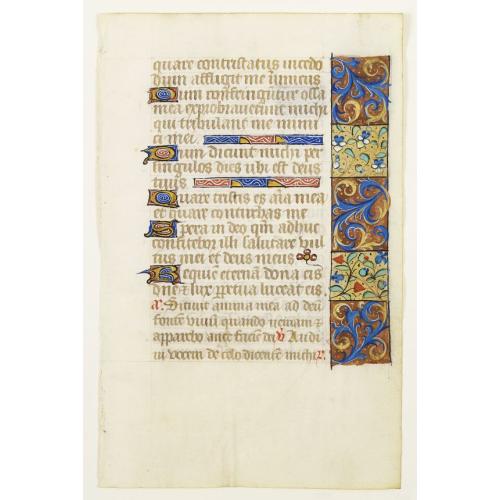 quare contristatus incedo
dum affligit me inimicus
Dum confringuntur ossa
mea exprobraverunt michi
qui tribulant me inimi
ci mei
Dum dicunt michi per
singulos dies ubi est deus
tuus
Quare tristis es aīa mea
et quare conturbas me
Spera in deo qm̄ adhuc
confitebor illi salutare vul
tus mei et deus meus
Requiē eternā dona eis
dn̄e & lux perpetua luceat eis
Sitivit anima mea ad deū
fontem vivū quando veniam &
apparebo ante faciē dei Audi
vi vocem de celo dicentē michi